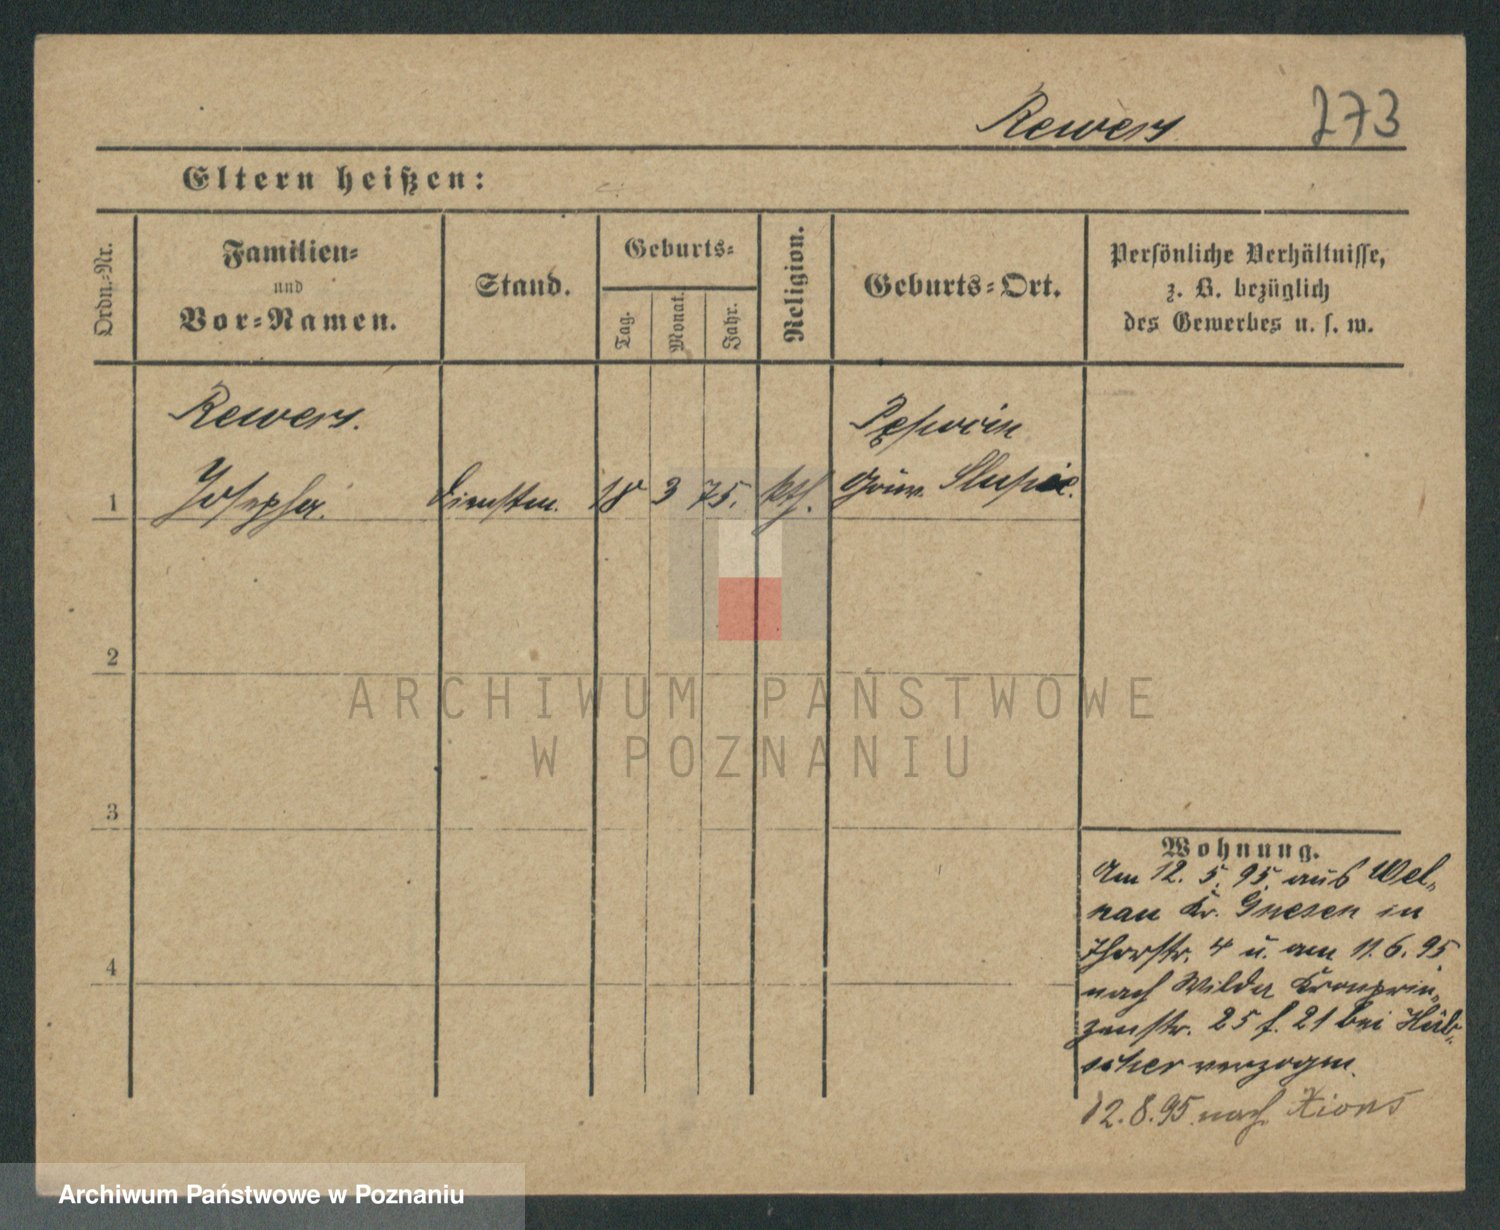 Rewers 273
Eltern heißen:
Ordn.-Nr.
Familien-
und
Vor-Namen.
Stand.
Geburts-
Tag.
Monat.
Jahr.
Religion.
Geburts-Ort.
Persönliche Verhältnisse,
z. B. bezüglich
des Gewerbes u. s. w.
Rewers.
1 Josepha. 18 3 75. kth. Slupia.
2
3
4
Wohnung.
Am 12. 5. 95. aus Wel-
nau Kr. Gnesen in
Thorstr. 4 u. am 11. 6. 95
nach Wilda Kronprin-
zenstr. 25 f. 21 bei Hüb-
scher verzogen.
12. 8. 95. nach Xions
ARCHIWUM PAŃSTWOWE
W POZNANIU
Archiwum Państwowe w Poznaniu